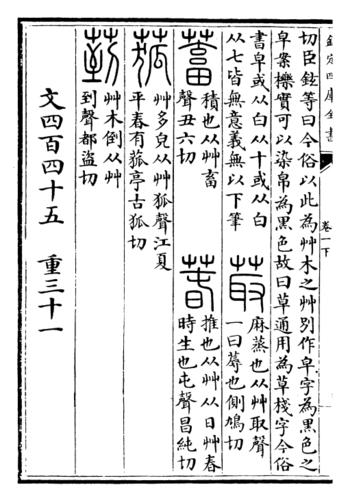 欽定四庫全書
卷一下
切臣鉉等曰今俗以此為艸木之艸别作皁字為黑色之
皁案櫟實可以染帛為黑色故曰草通用為草棧字今俗
書皁或从白从十或从白
从七皆無意義無以下筆
菆
麻蒸也从艸取聲
一曰蓐也側鳩切
蓄
積也从艸畜
聲丑六切
萅
推也从艸从日艸春
時生也屯聲昌純切
菰
艸多皃从艸狐聲江夏
平春有菰亭古狐切
菿
艸木倒从艸
到聲都盗切
文四百四十五 重三十一